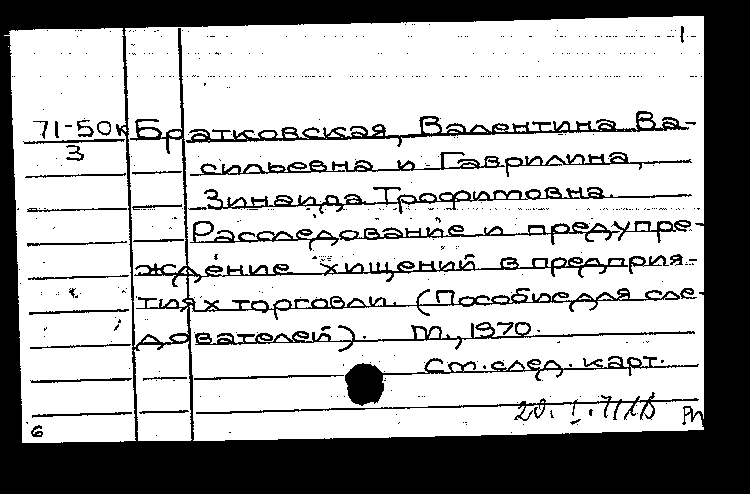 1
71-50к Братковская, Валентина Ва-
3 сильевна и Гаврилина,
Зинаида Трофимовна.
Расследование и предупре-
ждение хищений в предприя-
тиях торговли. (Пособие для сле-
дователей). М., 1970.
См. след. карт.
20. I. 71
6